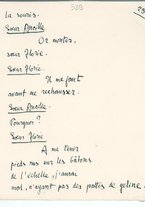 533
la souris.
Sœur Amélie
Or montez,
sœur Florie.
Sœur Florie.
Il me faut
avant me rechausser.
Sœur Amélie
Pourquoi ?
Sœur Florie
A me tenir
pieds nus sur les bâtons
de l'échelle, j'aurai
mal, n'ayant pas des pattes de geline.